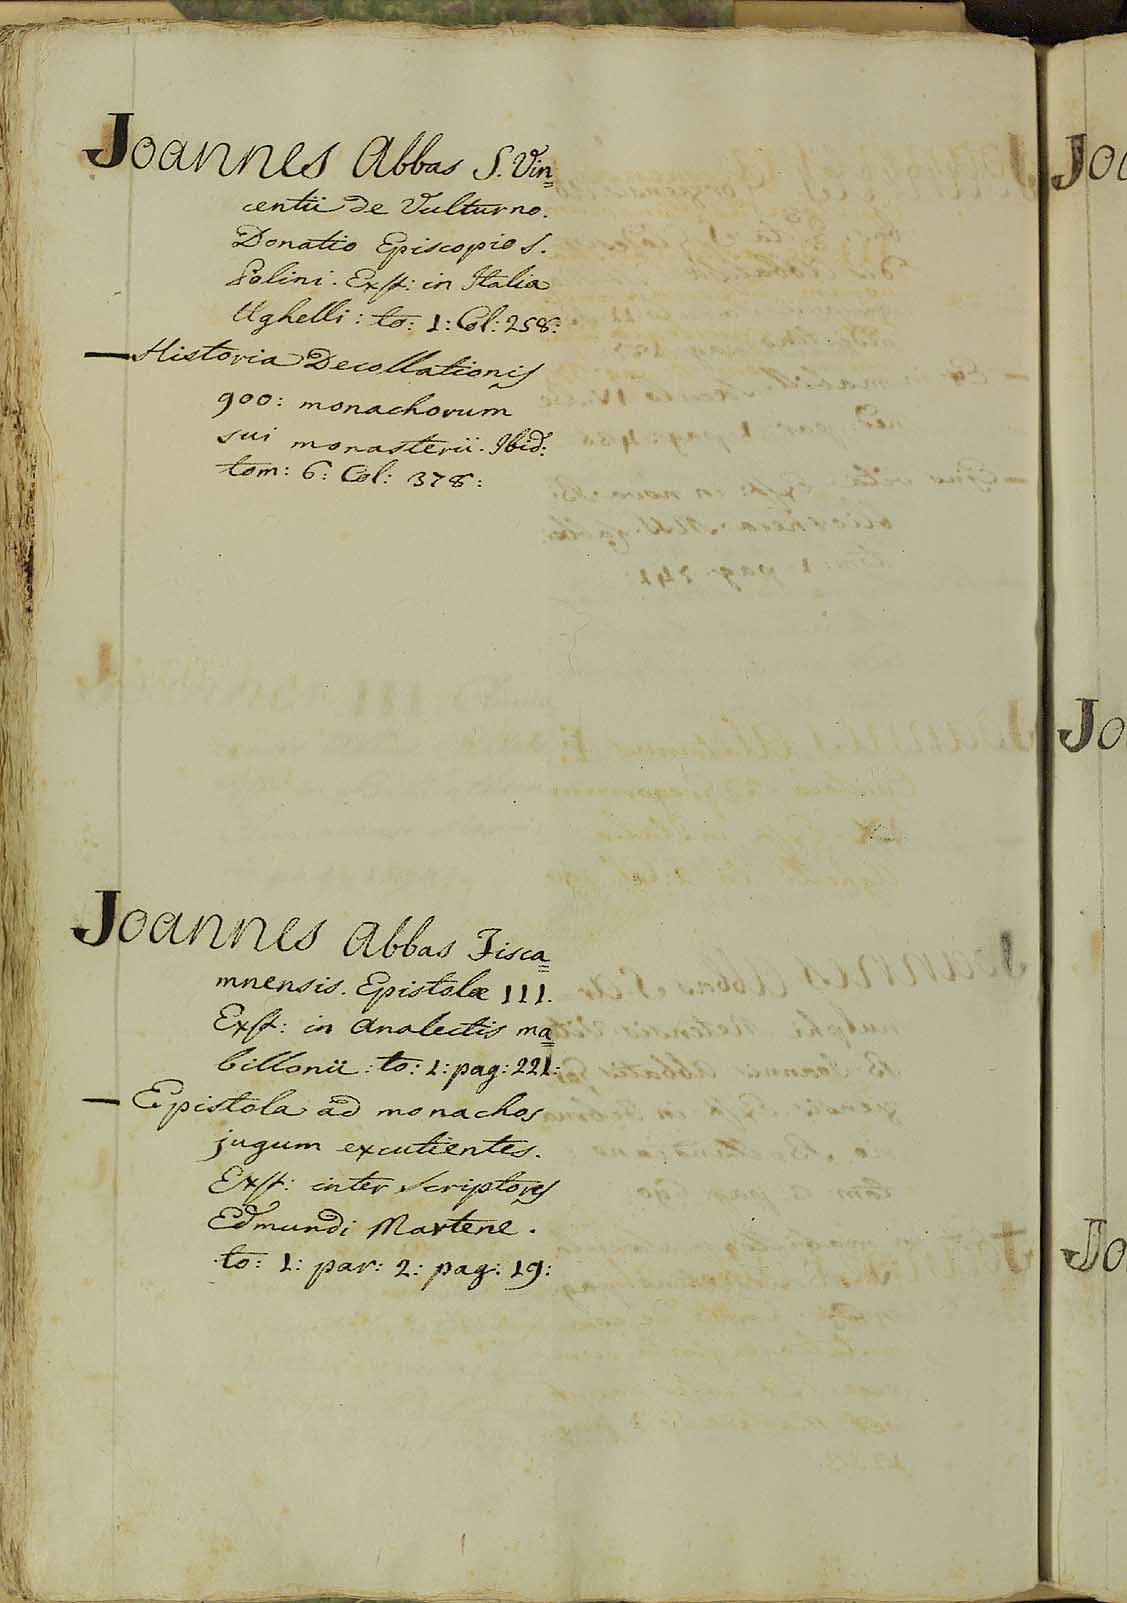 Joannes Abbas S. Vin=
centii de Vulturno.
Donatio Episcopio S.
Polini. Exst: in Italia
Ughelli: to: 1: Col: 258:
— Historia Decollationis
900: monachorum
sui monasterii. Ibid:
tom: 6: Col: 378:
Joannes Abbas Fisca=
mnensis. Epistolæ III.
Exst: in Analectis ma=
billonii: to: 1: pag: 221:
— Epistola ad monachos
jugum excutientes.
Exst: inter Scriptores
Edmundi Martene.
to: 1: par: 2: pag: 19:
Jo
Jo
Jo